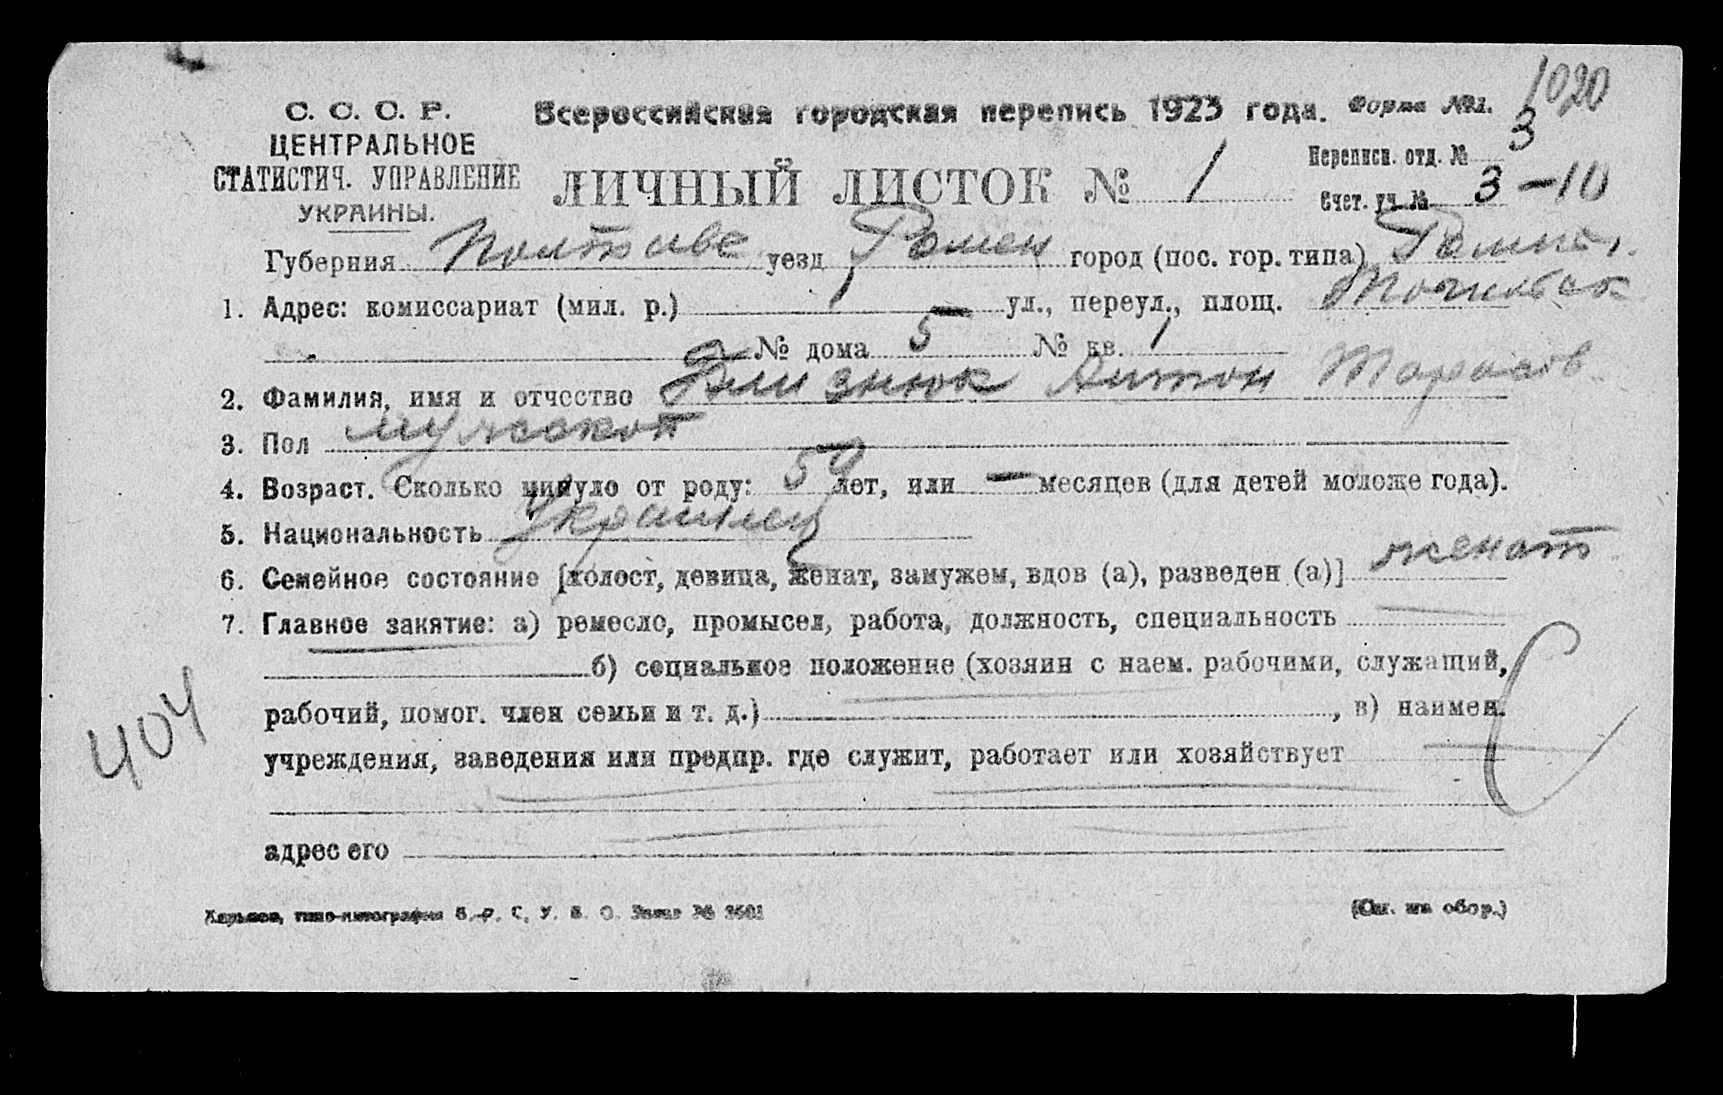 1020
С. С. С. Р.
ЦЕНТРАЛЬНОЕ
СТАТИСТИЧ. УПРАВЛЕНИЕ
УКРАИНЫ.
Всероссийская городская перепись 1923 года. Форма №1.
ЛИЧНЫЙ ЛИСТОК № 1
Переписн. отд. № 3
Счет. уч. № 3-10
Губерния Полтавс уезд Ромен город (пос. гор. типа)
1. Адрес: комиссариат (мил. р.) 1 — ул., переул., площ.
№ дома 5 № кв. 1
2. Фамилия, имя и отчество Близнюк Антон Тарасов
3. Пол мужской
4. Возраст. Сколько минуло от роду: 59 лет, или — месяцев (для детей моложе года).
5. Национальность Украинец
6. Семейное состояние [холост, девица, женат, замужем, вдов (а), разведен (а)] женат
7. Главное закятие: а) ремесло, промысел, работа, должность, специальность
б) социальное положение (хозяин с наем. рабочими, служащий,
рабочий, помог. член семьи и т. д.) , в) наимен.
учреждения, заведения или предпр. где служит, работает или хозяйствует
404
адрес его
(См. на обор.)